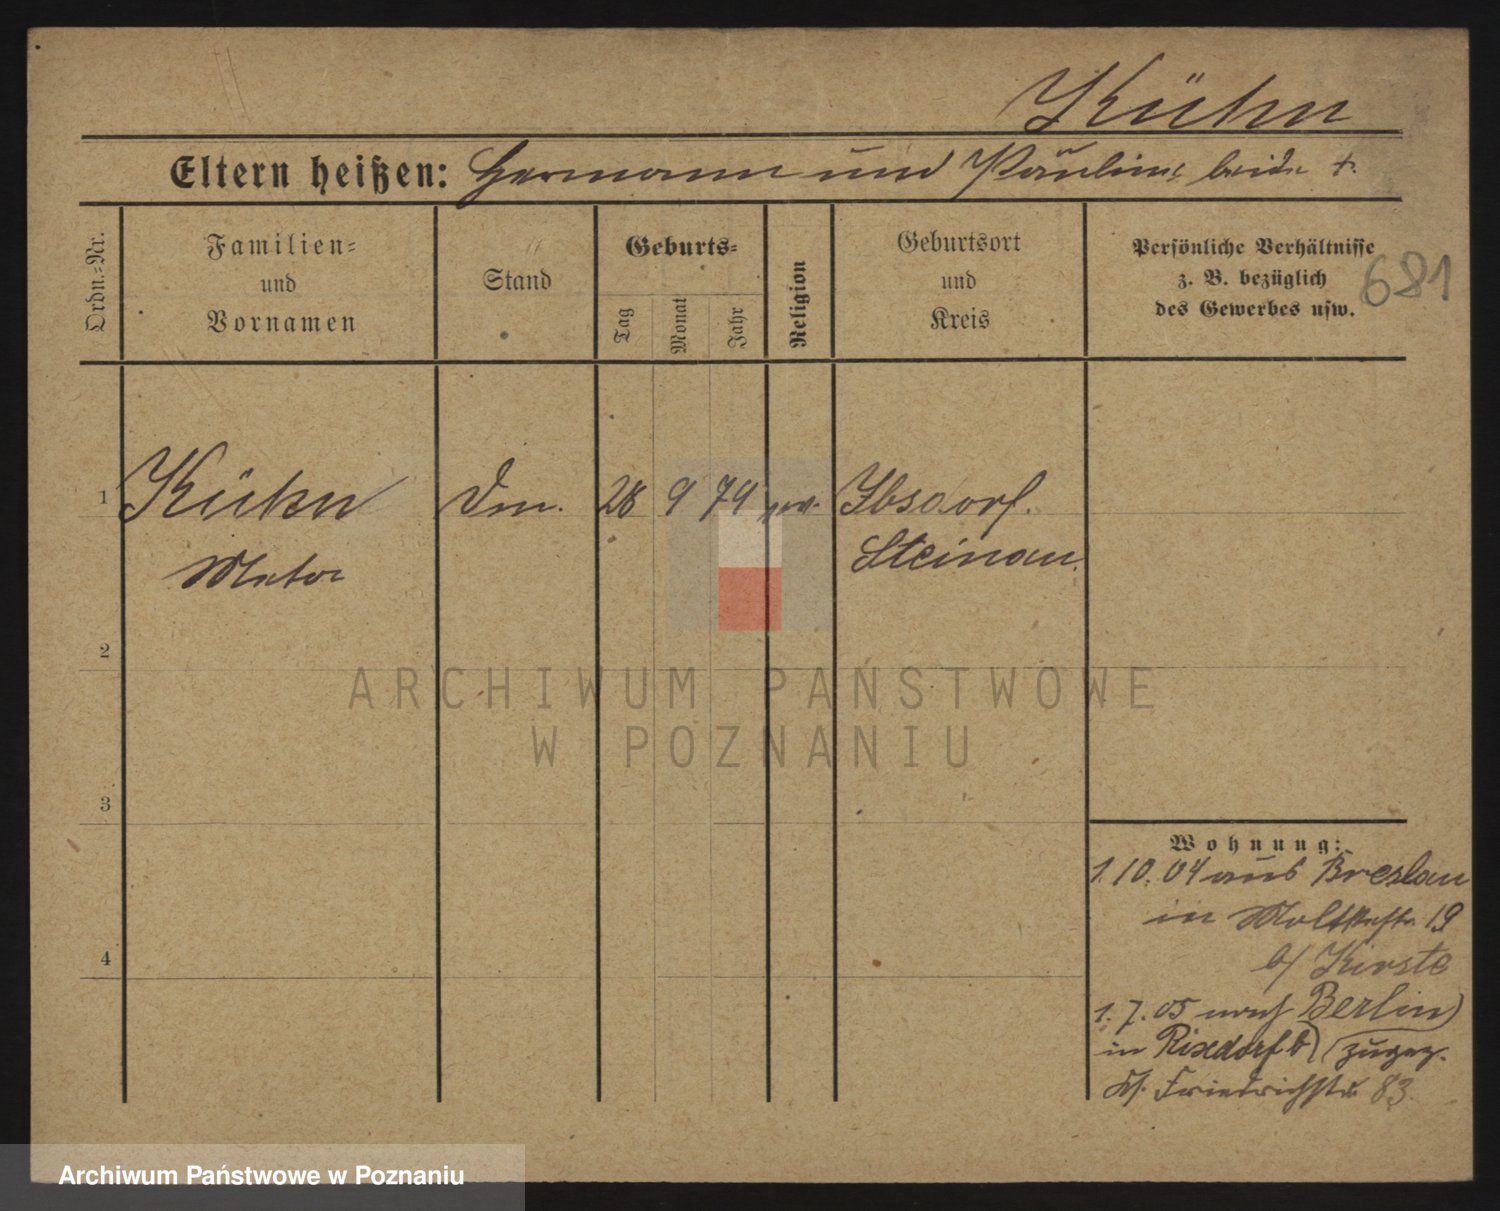 Kühn
Eltern heißen: Hermann und Pauline beide +.
Ordn.=Nr.
Familien=
und
Vornamen
Stand
Geburts=
Tag
Monat
Jahr
Religion
Geburtsort
und
Kreis
Persönliche Verhältnisse
z. B. bezüglich
des Gewerbes usw.
681
1 Kühn 28 9 79 Ibsdorf.
Meta Steinau.
2
3
4
Wohnung:
1.10.04 aus Breslau
in Moltkestr. 19
b/ Kirste
1.7.05 nach Berlin)
in Rixdorf b) (zugez.
Friedrichstr. 83.
ARCHIWUM PAŃSTWOWE
W POZNANIU
Archiwum Państwowe w Poznaniu